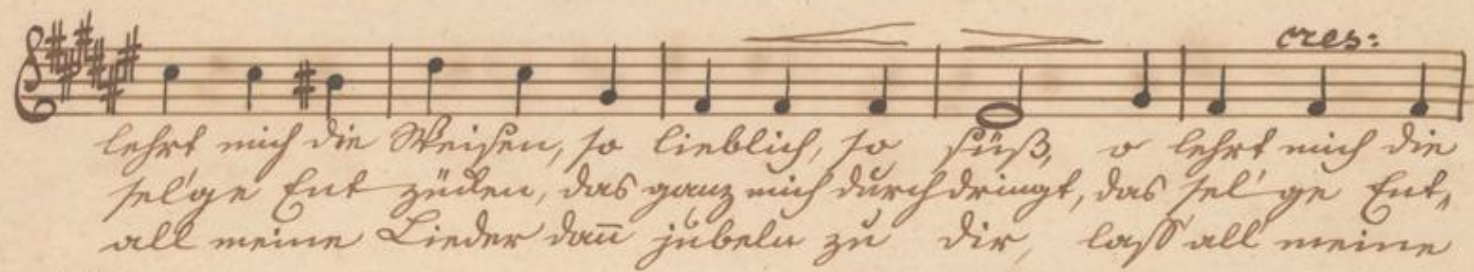 cres:
lehrt mich die Weisen, so lieblich, so süß, o lehrt mich die
sel'ge Ent zücken, das ganz mich durchdringt, das sel'ge Ent,
all meine Lieder dan̄ jubeln zu dir, lass all meine